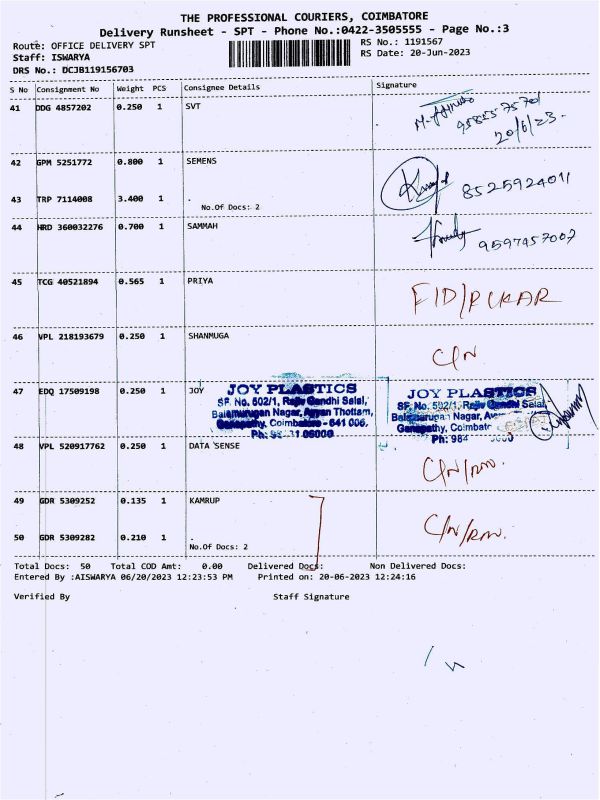 THE PROFESSIONAL COURIERS, COIMBATORE
Delivery Runsheet - SPT - Phone No.:0422-3505555 - Page No.:3
Route: OFFICE DELIVERY SPT
RS No.: 1191567
Staff: ISWARYA
RS Date: 20-Jun-2023
DRS No.: DCJB119156703
S No Consignment No Weight PCS Consignee Details Signature
41 DDG 4857202 0.250 1 SVT
20/6/23.
42 GPM 5251772 0.800 1 SEMENS
8525924011
43 TRP 7114008 3.400 1 .
No.Of Docs: 2
44 HRD 360032276 0.700 1 SAMMAH
9597457007
45 TCG 40521894 0.565 1 PRIYA
FID/PUKAR
46 VPL 218193679 0.250 1 SHANMUGA
C/N
47 EDQ 17509198 0.250 1 JOY
JOY PLASTICS
SF. No. 502/1, Rajiv Gandhi Salai,
Balamurugan Nagar, Ayyan Thottam,
Ganapathy, Coimbatore - 641 006.
JOY PLASTICS
SF. No. 502/1, Rajiv Gandhi Salai,
Balamurugan Nagar,
Ganapathy, Coimbatore
48 VPL 520917762 0.250 1 DATA SENSE
C/N/RM.
49 GDR 5309252 0.135 1 KAMRUP
C/N/RM.
50 GDR 5309282 0.210 1 .
No.Of Docs: 2
Total Docs: 50 Total COD Amt: 0.00 Delivered Docs: Non Delivered Docs:
Entered By :AISWARYA 06/20/2023 12:23:53 PM Printed on: 20-06-2023 12:24:16
Verified By Staff Signature